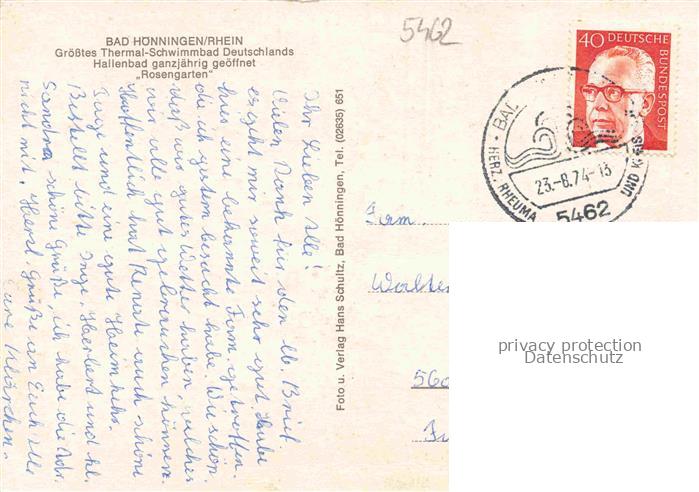 5462
BAD HÖNNINGEN/RHEIN
Größtes Thermal-Schwimmbad Deutschlands
Hallenbad ganzjährig geöffnet
„Rosengarten"
40 DEUTSCHE BUNDESPOST
BAD
HERZ, RHEUMA UND KREIS
23.-8.74-13
5462
Ihr Lieben Alle!
Vielen Dank für den lb. Brief
es geht mir soweit sehr gut. Habe
hier eine bekannte Fam. getroffen.
die ich gestern besucht habe. Wie schön
daß wir gutes Wetter haben, welches
wir alle gut gebrauchen können.
Hoffentlich hat Renate auch schöne
Tage und eine gute Heimkehr.
Bestellt bitte Inge, Herbert und kl.
Sandra schöne Grüße, ich habe die Adr.
nicht mit. Herzl. Grüße an Euch alle
Eure Klärchen.
Foto u. Verlag Hans Schultz, Bad Hönningen, Tel. (02635) 651
Fam.
Walter
560
privacy protection
Datenschutz